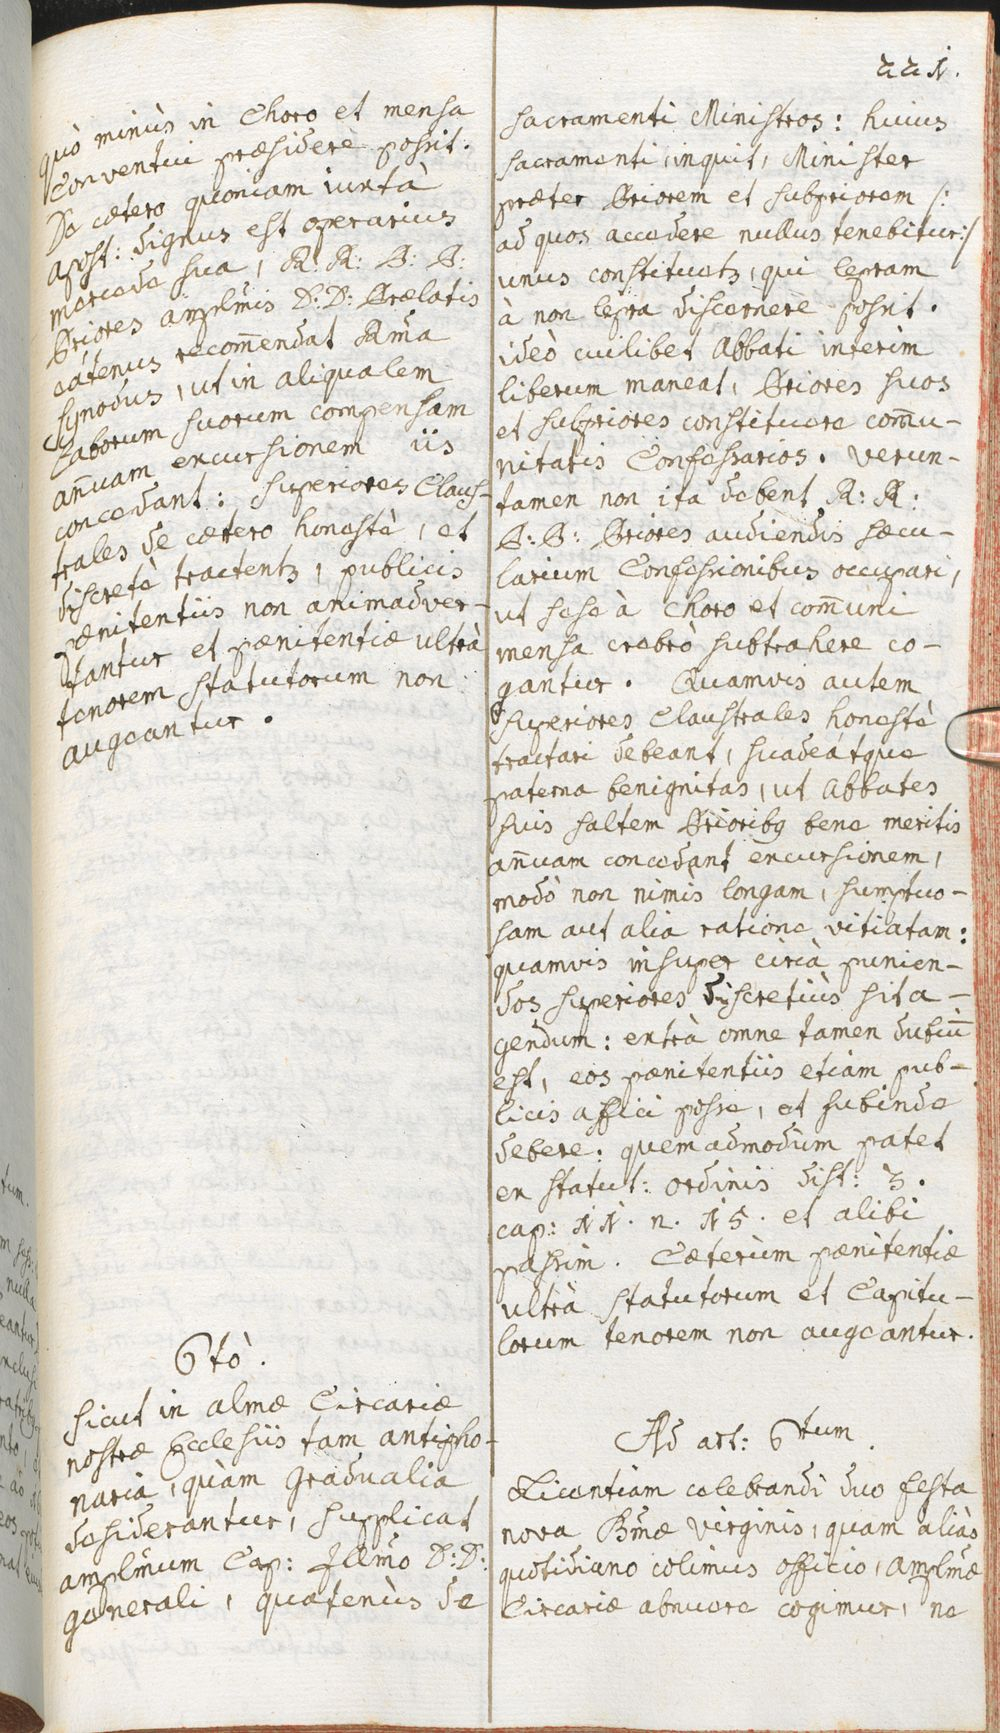 221.
quò minùs in Choro et mensa
Conventui præsidere possit.
De cætero quoniam iuxtà
apost: dignus est operarius
mercede sua, R: R: P: P:
Priores amplmis D: D: Prælatis
eátenus recom̄endat Rma
synodus, ut in aliqualem
Laborum suorum compensam
an̄uam excursionem iis
concedant: Superiores Claus-
trales de cætero honestè, et
discretè tractentz, publicis
pænitentiis non animadver-
tantur et pænitentiæ ultrà
tenorem statutorum non
augeantur.
6tò.
Sicut in almæ Circariæ
nostræ Ecclesiis tam antipho-
naria, quàm Gradualia
desiderantur, supplicat
amplmum Cap: Illmo D: D:
generali, quatenùs de
sacramenti Ministros: huius
sacramenti, inquit, Minister
præter Priorem et subpriorem /:
ad quos accedere nullus tenebitur:/
unus constituetz, qui lepram
à non lepra discernere possit.
ideò cuilibet Abbati interim
liberum maneat, Priores suos
et subpriores constituere com̄u-
nitatis Confessarios. Verun-
tamen non ita debent R: R:
P: P: Priores audiendis sæcu-
larium Confessionibus occupari,
ut sese à choro et com̄uni
mensa crebrò subtrahere co-
gantur. Quamvis autem
Superiores Claustrales honestè
tractari debeant, suadeátque
paterna benignitas, ut Abbates
suis saltem Prioribq bene meritis
an̄uam concedant excursionem,
modò non nimis longam, sumptuo-
sam aut alia ratione vitiatam:
quamvis insuper circà punien-
dos superiores discretiùs sit a-
gendum: extrà omne tamen dubiū
est, eos pænitentiis etiam pub-
licis affici posse, et subinde
debere: quemadmodum patet
ex statut: ordinis dist: 3.
cap: 11. n. 15. et alibi
passim. Cæterùm pænitentiæ
ultrà statutorum et Capitu-
lorum tenorem non augeantur.
Ad art: 6tum.
Licentiam celebrandi duo festa
nova Bmæ Virginis, quam aliàs
quotidiano colimus officio, amplmæ
Circariæ abnuere cogimur, ne